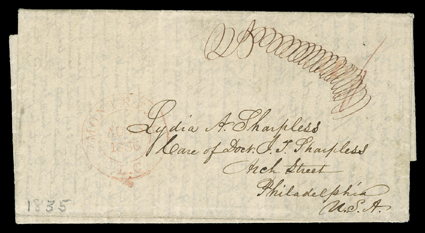 Lydia A. Sharpless
Care of Doct. J. T. Sharpless
Arch Street
Philadelphia
U.S.A.
1835